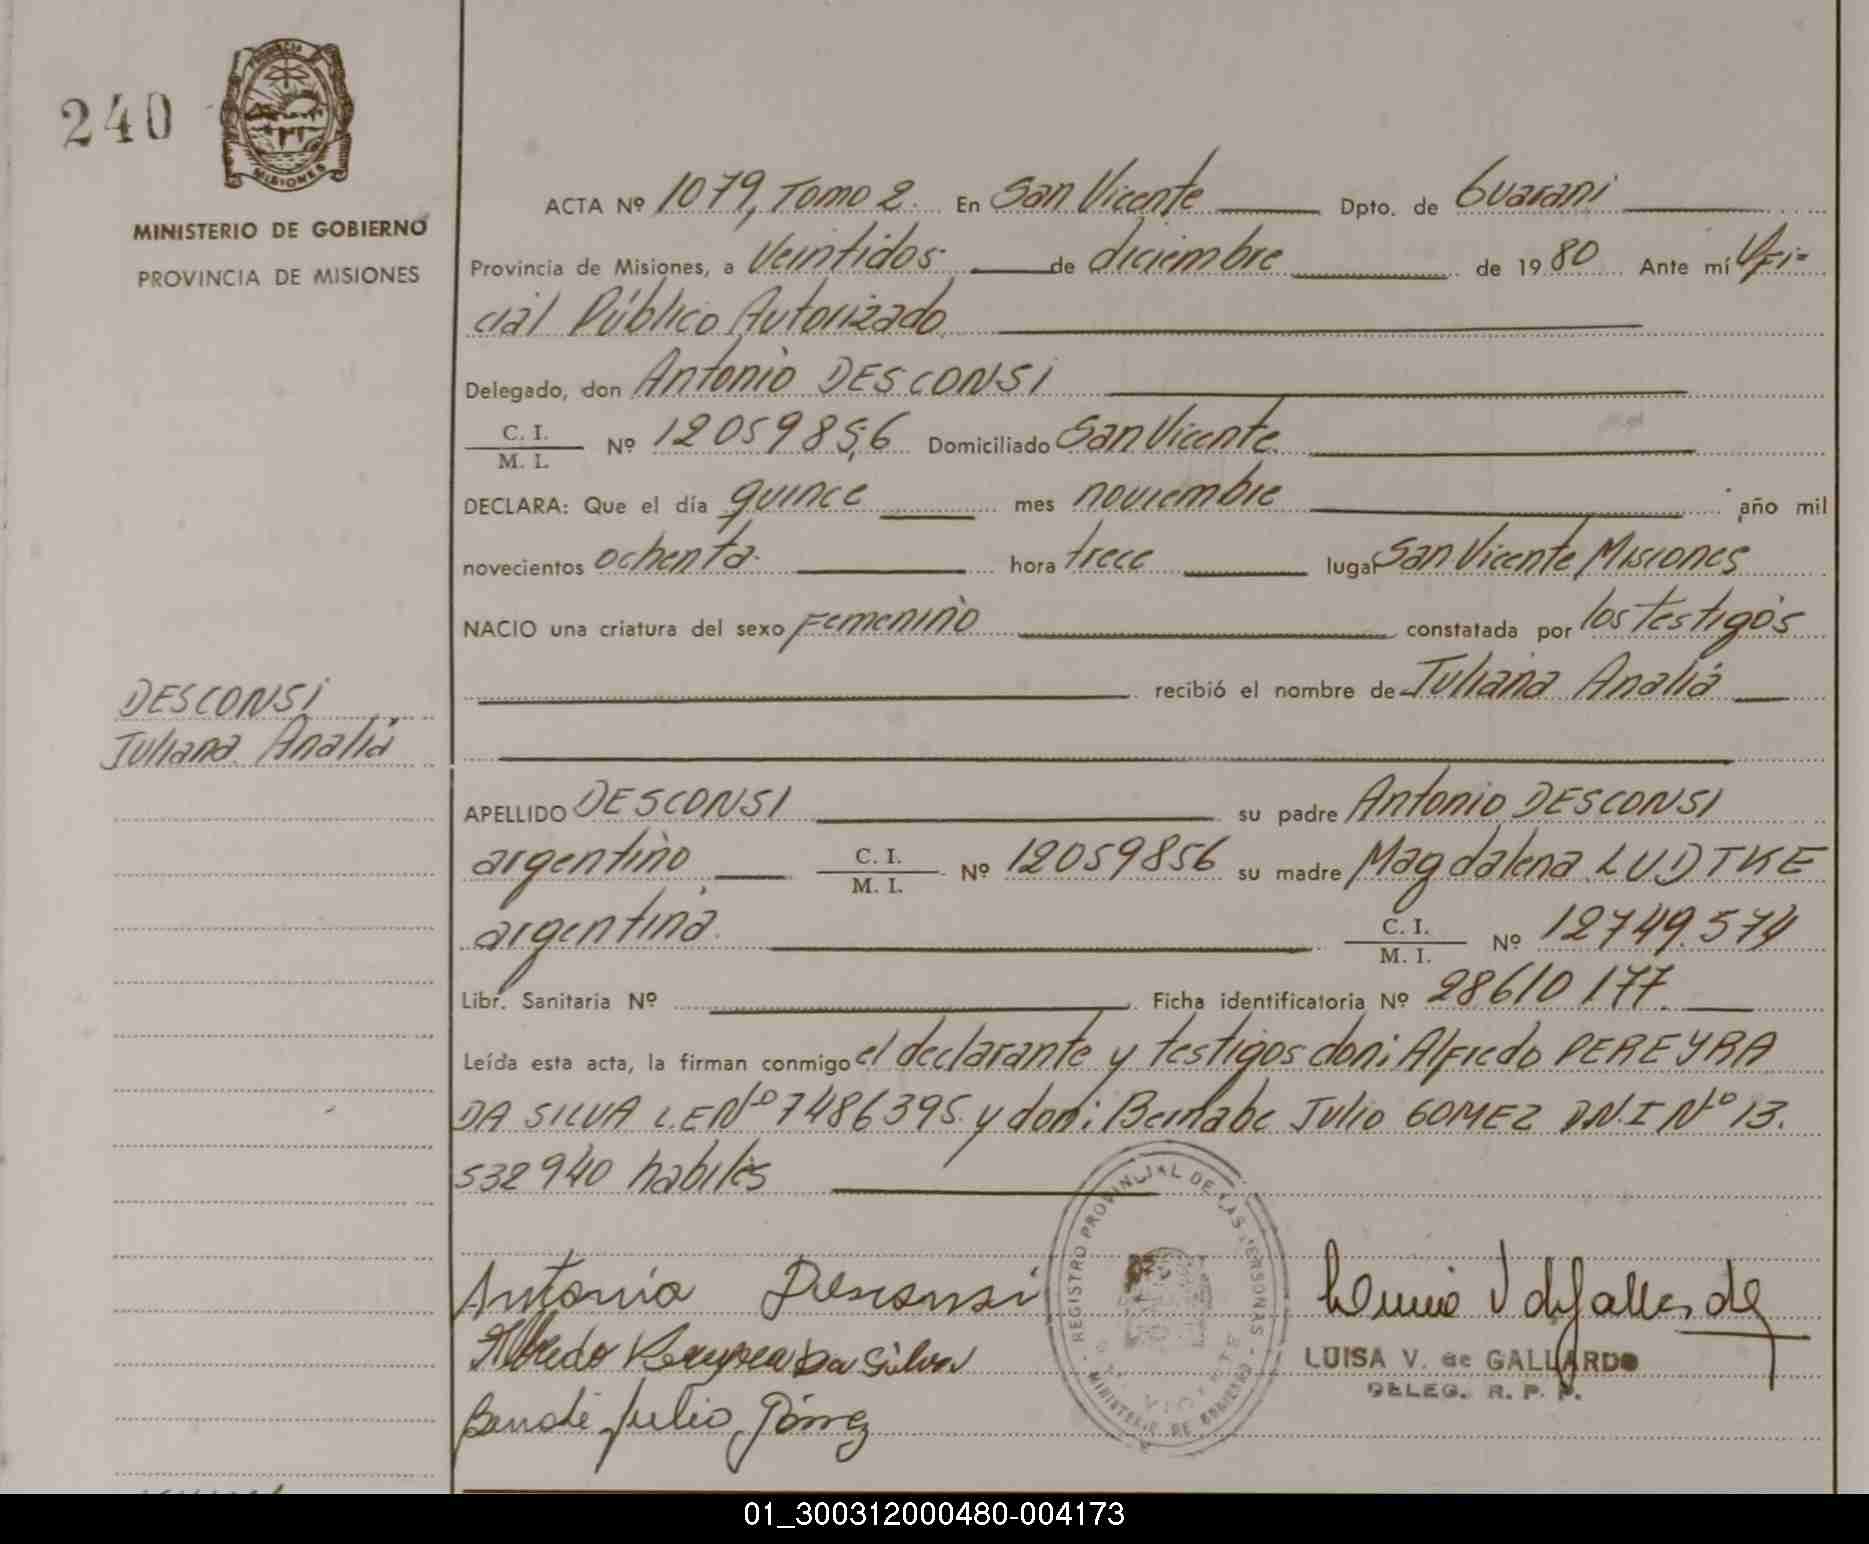 240
PROVINCIA
MISIONES
MINISTERIO DE GOBIERNO
PROVINCIA DE MISIONES
ACTA Nº 1079, Tomo 2. En San Vicente Dpto. de Guarani
Provincia de Misiones, a Veintidos de diciembre de 1980 Ante mí Ofi-
cial Público Autorizado
Delegado, don Antonio DESCONSI
C. I.
M. I. Nº 12059856 Domiciliado San Vicente.
DECLARA: Que el día quince mes noviembre año mil
novecientos ochenta hora trece lugar San Vicente Misiones
NACIO una criatura del sexo Femenino constatada por los testigos
recibió el nombre de Juliana Analiá
DESCONSI
Juliana Analiá
APELLIDO DESCONSI su padre Antonio DESCONSI
argentino, C. I.
M. I. Nº 12059856 su madre Magdalena LUDTKE
argentina. C. I.
M. I. Nº 12749.574
Libr. Sanitaria Nº Ficha identificatoria Nº 28610177.
Leída esta acta, la firman conmigo el declarante y testigos don: Alfredo PEREYRA
DA SILVA L.E Nº 7486395 y don: Bernabe Julio GOMEZ D.N.I Nº 13.
532940 habiles
REGISTRO PROVINCIAL DE LAS PERSONAS
MINISTERIO DE GOBIERNO
Antonio Desconsi
Alfredo Pereyra Da Silva
Julio Gómez
LUISA V. de GALLARDO
DELEG. R. P. P.
01_300312000480-004173